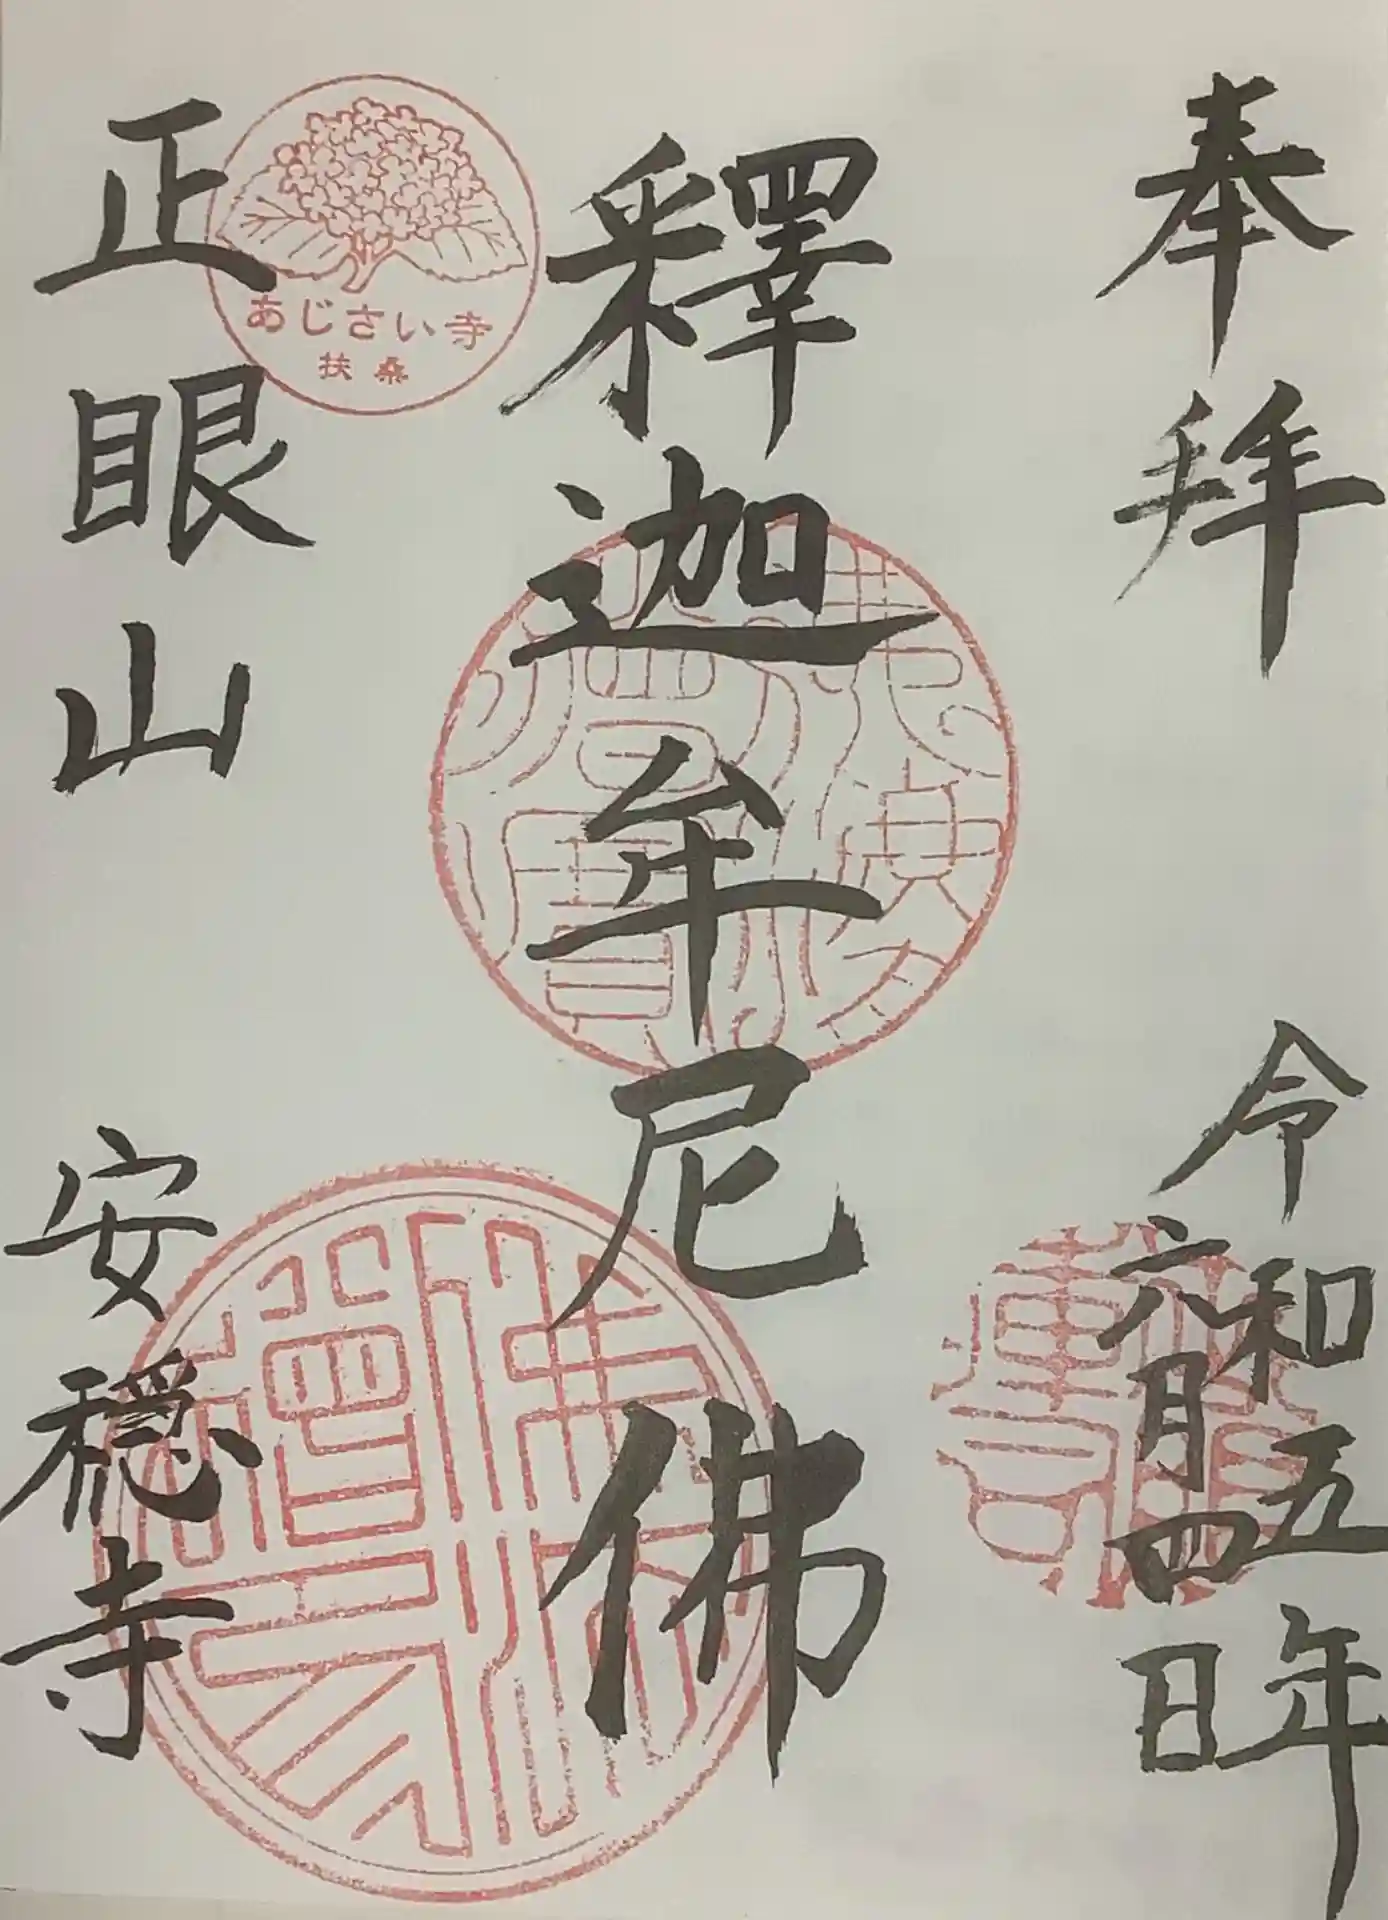 奉拜
令和五年
六月四日
釋迦牟尼佛
正眼山
安穏寺
あじさい寺
扶桑